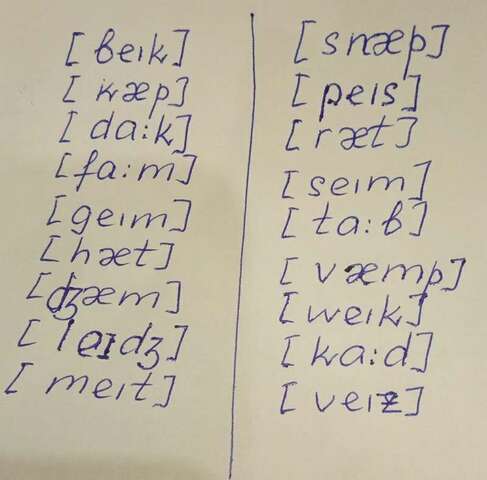 [beɪk]
[kæp]
[da:k]
[fa:m]
[geɪm]
[hæt]
[dʒæm]
[laɪdʒ]
[meɪt]
[snæp]
[peɪs]
[ræt]
[seɪm]
[ta:b]
[væmp]
[weɪk]
[ka:d]
[veɪz]